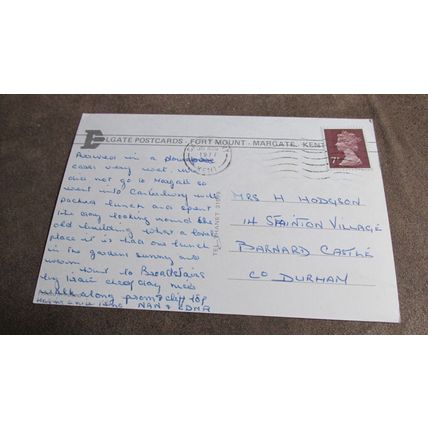 ELGATE POSTCARDS - FORT MOUNT - MARGATE, KENT
1977
KENT
7P
Arrived in a
very wet, we
did not go to Margate so
went into Canterbury with
packed lunch and spent
the day looking round the
old building what a lovely
place it is had our lunch
in the gardens sunny and
warm
Went to Broadstairs
by train clear day nice
walk along prom & cliff top
NAN & EDNA
TEL. THANET
MRS H HODGSON
14 STAINTON VILLAGE
BARNARD CASTLE
CO DURHAM